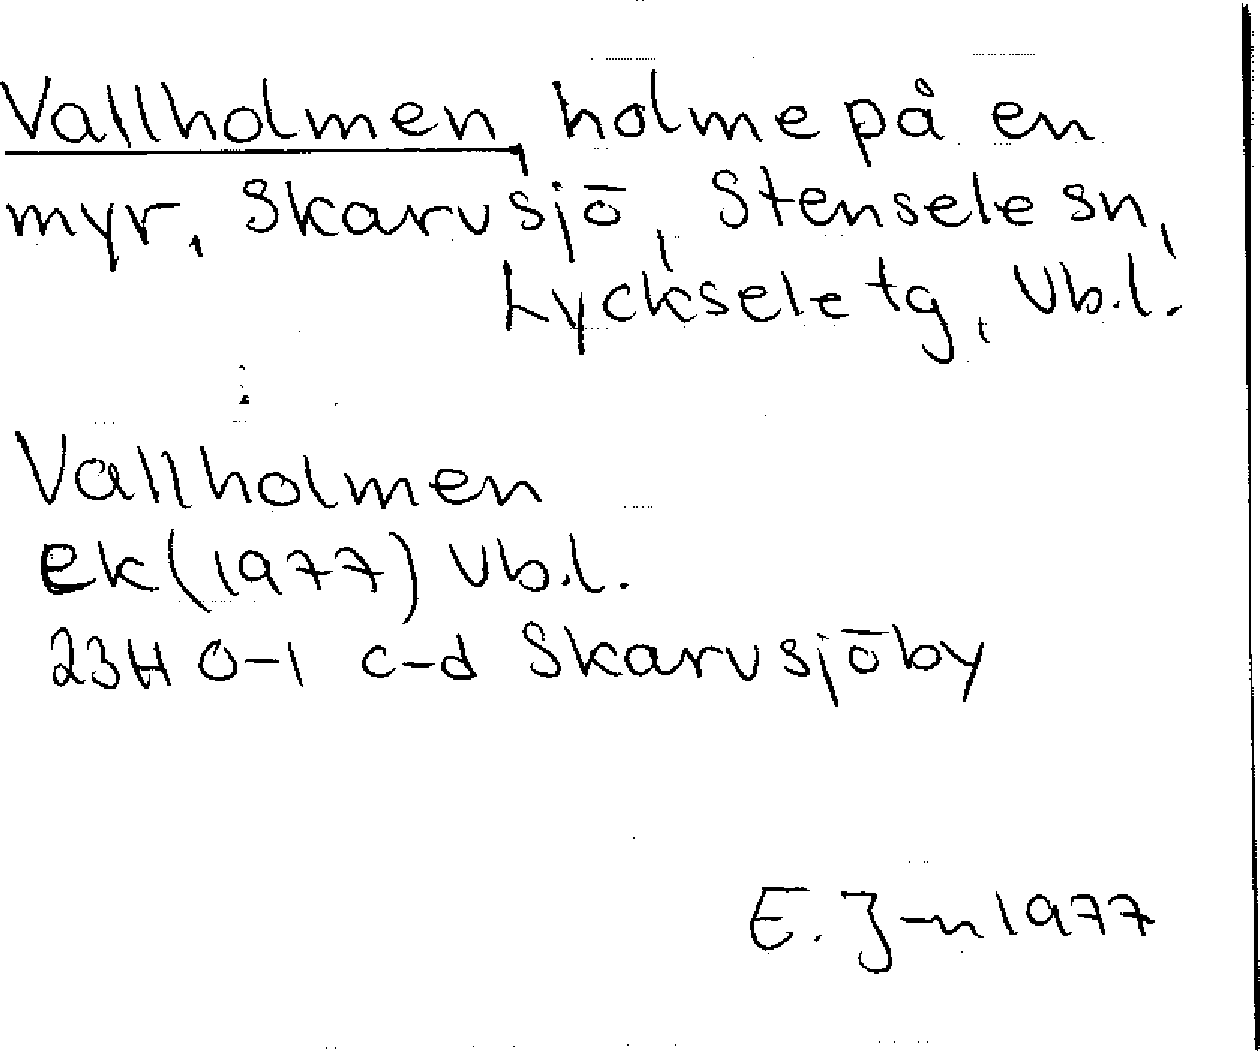 Vallholmen, holme på en
myr, Skarvsjö, Stensele sn,
Lycksele tg, Vb.l.
Vallholmen
ek (1977) Vb.l.
23H 0-1 c-d Skarvsjöby
E. J-n 1977